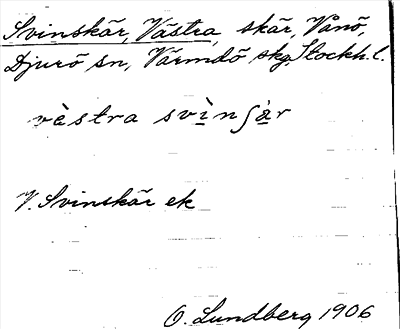 Svinskär, Västra, skär, Vånö,
Djurö sn, Värmdö skg, Stockh. l.
västra svìnʃà̱r
V. Svinskär ek
O. Lundberg 1906